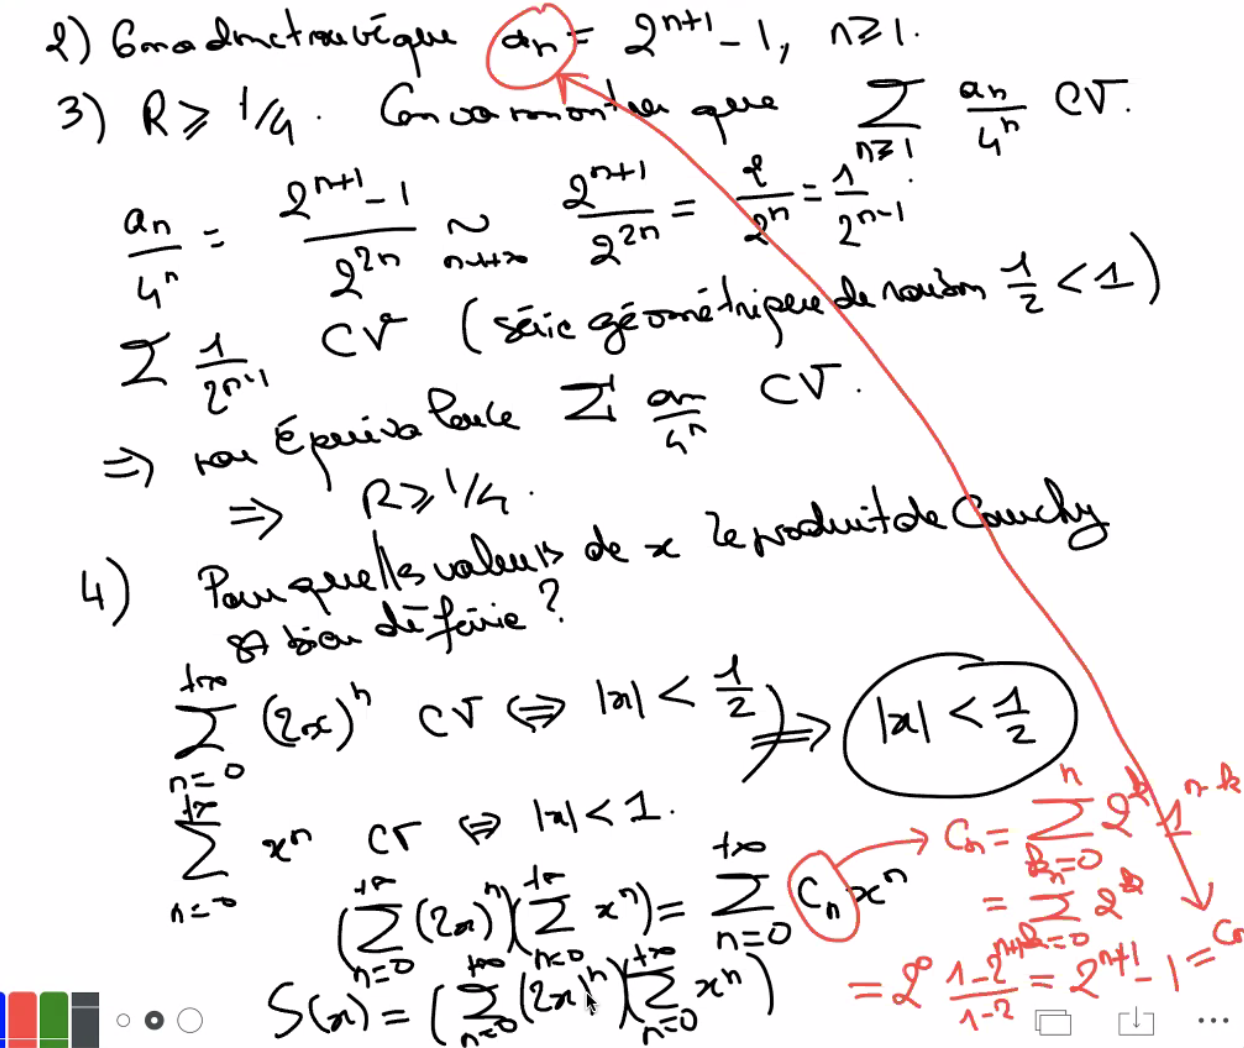 2) On a donc trouvé que an = 2^{n+1} - 1, n ≥ 1.
3) R ≥ 1/4. On va montrer que Σ_{n≥1} an/4^n CV.
an/4^n = (2^{n+1} - 1)/2^{2n} ~_{n→+∞} 2^{n+1}/2^{2n} = 2/2^n = 1/2^{n-1}
Σ 1/2^{n-1} CV (série géométrique de raison 1/2 < 1)
⇒ par équivalence Σ an/4^n CV.
⇒ R ≥ 1/4.
4) Pour quelles valeurs de x le produit de Cauchy
est bien définie ?
Σ_{n=0}^{+∞} (2x)^n CV ⇔ |x| < 1/2 ⇒ |x| < 1/2
Σ_{n=0}^{+∞} x^n CV ⇔ |x| < 1.
(Σ_{n=0}^{+∞} (2x)^n)(Σ_{n=0}^{+∞} x^n) = Σ_{n=0}^{+∞} Cn x^n
S(x) = (Σ_{n=0}^{+∞} (2x)^n)(Σ_{n=0}^{+∞} x^n)
Cn = Σ_{k=0}^{n} 2^k 1^{n-k}
= Σ_{k=0}^{n} 2^k
= 2^0 (1-2^{n+1})/(1-2) = 2^{n+1} - 1 = Cn